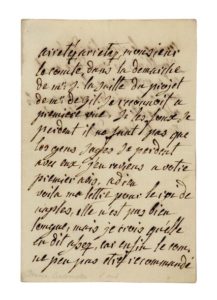 arretés arretés, monsieur
le comte, dans la demarche
de mr. j. la suitte du projet
de mr. de je reconnoit a
premiere vue. si les fous se
perdent il ne faut pas que
les gens sages se perdent
avec eux. j'en reviens a votre
premier avis, adieu
voila ma lettre pour le roi de
naples, elle n'est pas bien
longue, mais je crois quelle
en dit assez car enfin le com
ne peu pas être recommandé